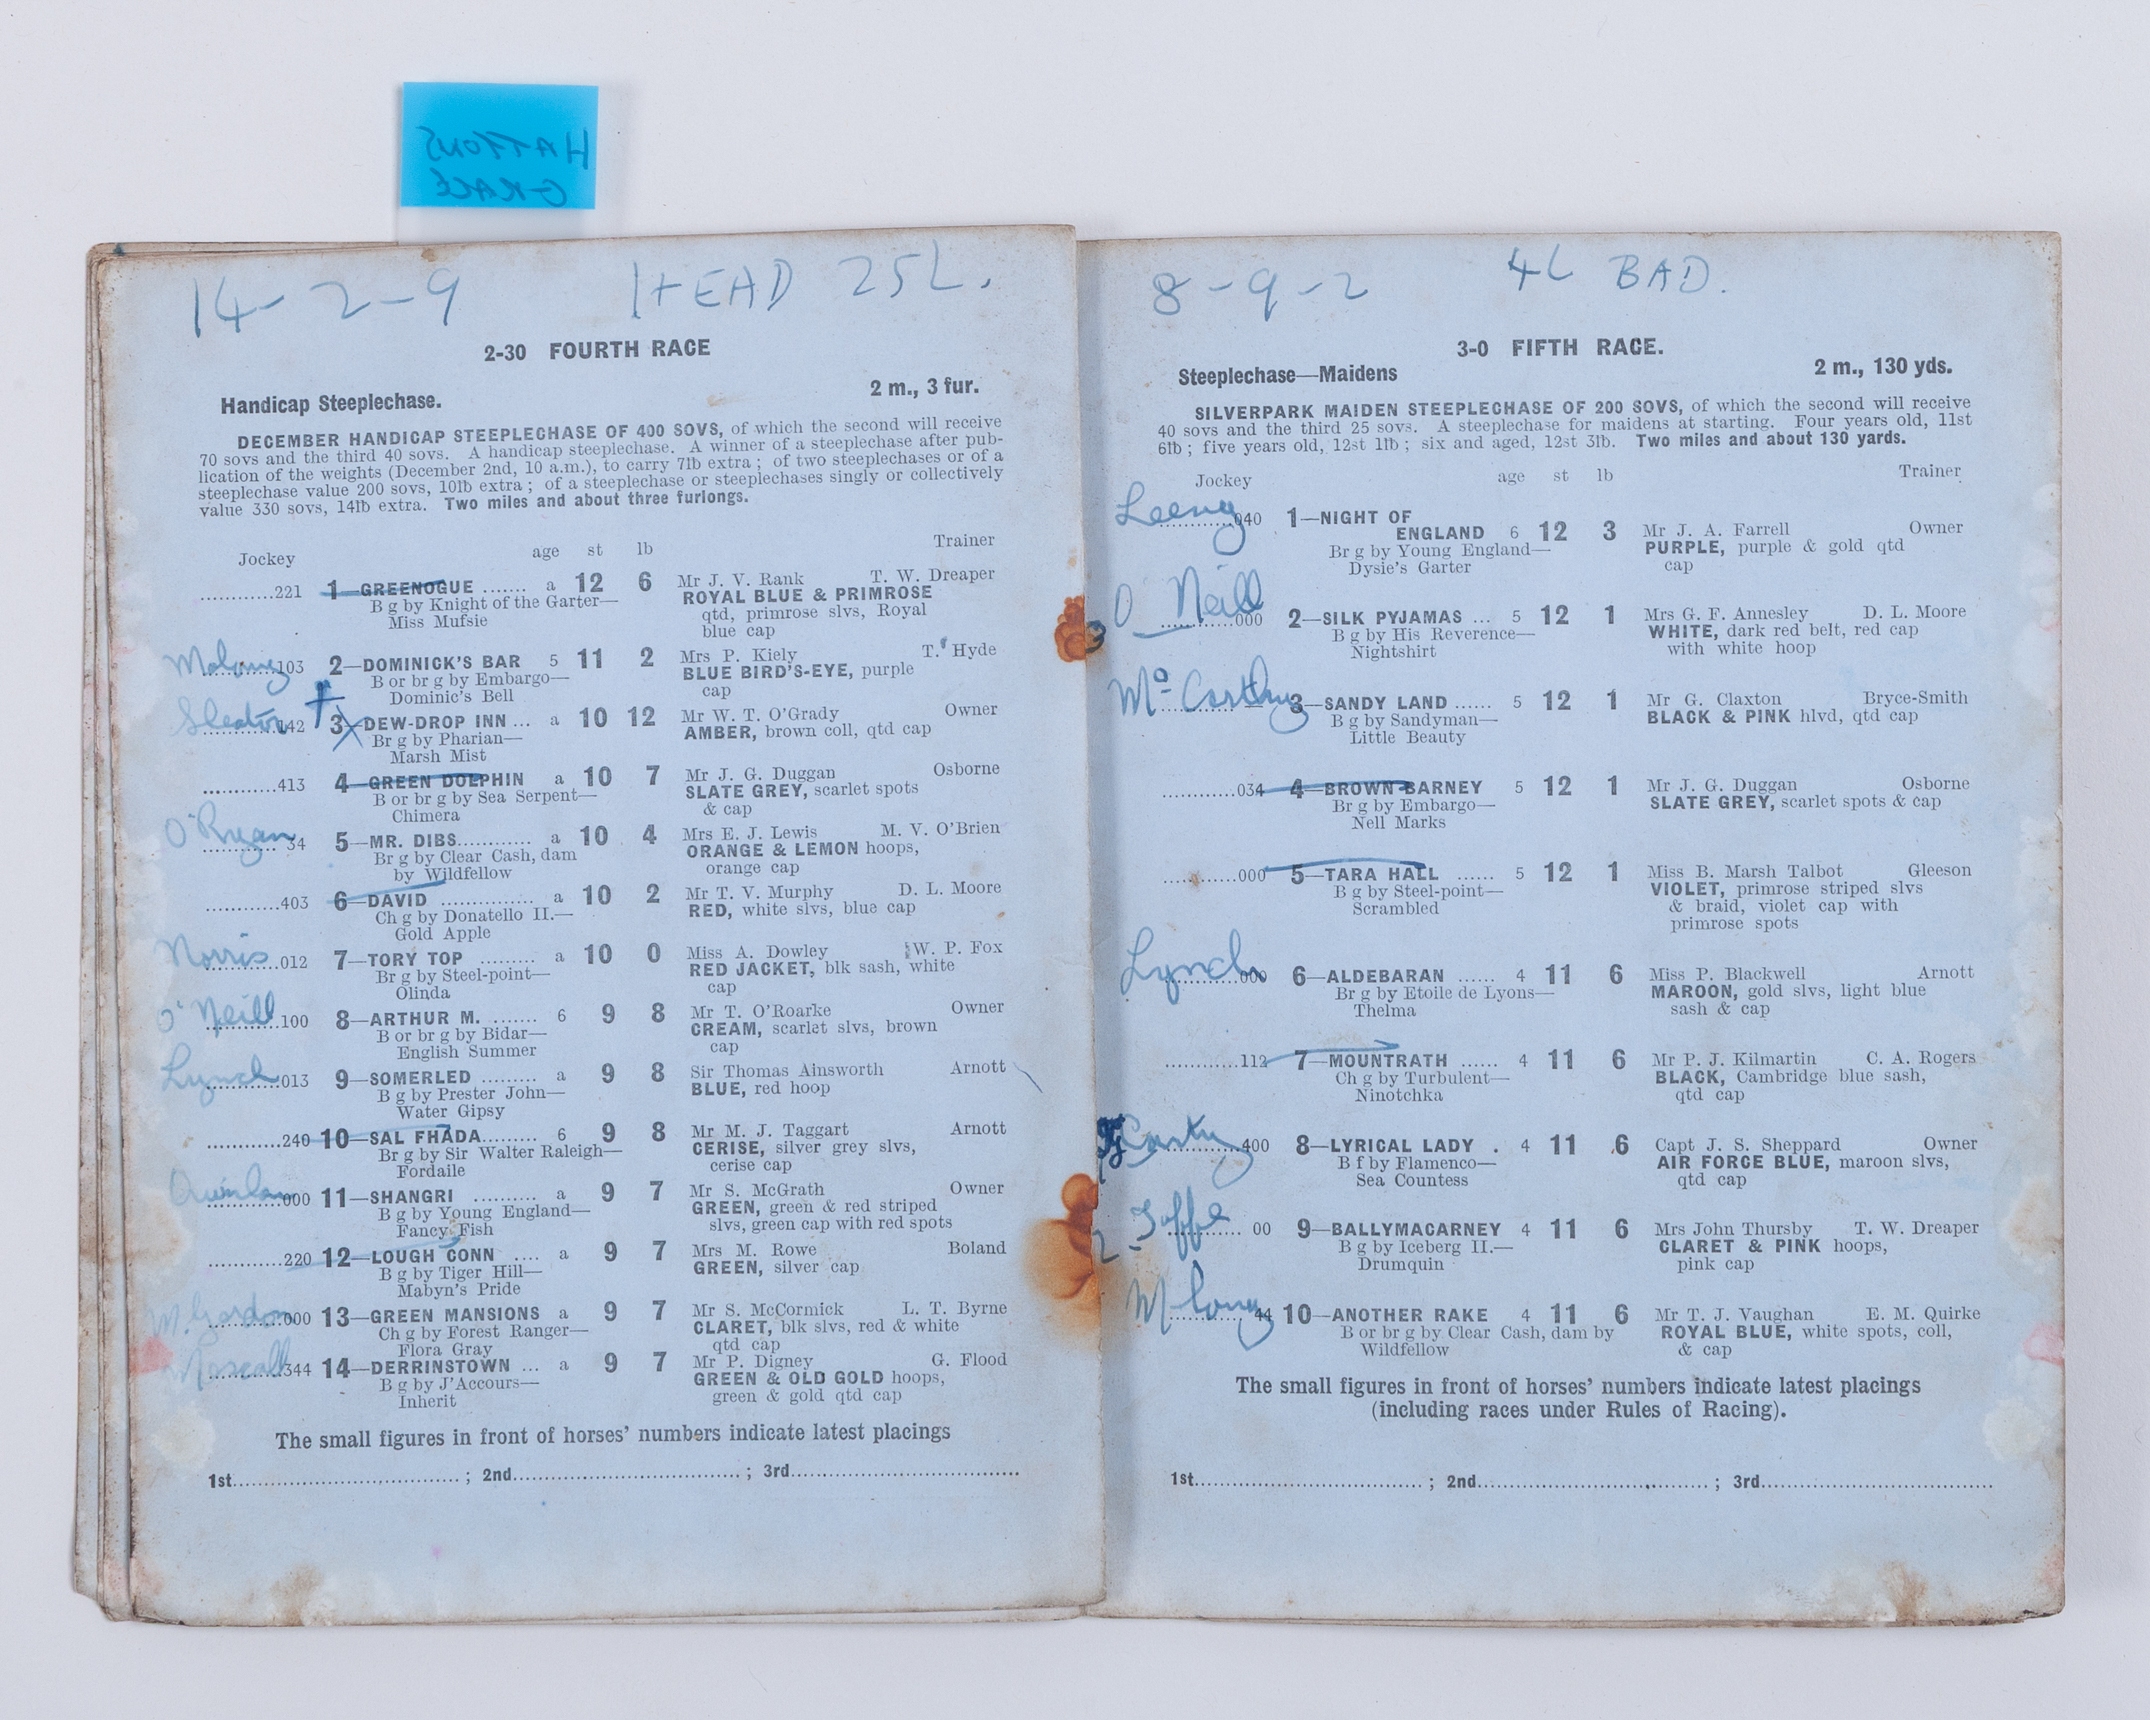 HATTONS
GRACE
14-2-9 HEAD 25L.
2-30 FOURTH RACE
Handicap Steeplechase. 2 m., 3 fur.
DECEMBER HANDICAP STEEPLECHASE OF 400 SOVS, of which the second will receive
70 sovs and the third 40 sovs. A handicap steeplechase. A winner of a steeplechase after pub-
lication of the weights (December 2nd, 10 a.m.), to carry 7lb extra; of two steeplechases or of a
steeplechase value 200 sovs, 10lb extra; of a steeplechase or steeplechases singly or collectively
value 330 sovs, 14lb extra. Two miles and about three furlongs.
Jockey age st lb Trainer
............221 1—GREENOGUE ....... a 12 6 Mr J. V. Rank T. W. Dreaper
B g by Knight of the Garter— ROYAL BLUE & PRIMROSE
Miss Mufsie qtd, primrose slvs, Royal
blue cap
Molony 103 2—DOMINICK'S BAR 5 11 2 Mrs P. Kiely T. Hyde
B or br g by Embargo— BLUE BIRD'S-EYE, purple
Dominic's Bell cap
Sleator 142 3—DEW-DROP INN ... a 10 12 Mr W. T. O'Grady Owner
Br g by Pharian— AMBER, brown coll, qtd cap
Marsh Mist
............413 4—GREEN DOLPHIN a 10 7 Mr J. G. Duggan Osborne
B or br g by Sea Serpent— SLATE GREY, scarlet spots
Chimera & cap
O'Ryan 34 5—MR. DIBS............ a 10 4 Mrs E. J. Lewis M. V. O'Brien
Br g by Clear Cash, dam ORANGE & LEMON hoops,
by Wildfellow orange cap
............403 6—DAVID ............... a 10 2 Mr T. V. Murphy D. L. Moore
Ch g by Donatello II.— RED, white slvs, blue cap
Gold Apple
Norris 012 7—TORY TOP ......... a 10 0 Miss A. Dowley W. P. Fox
Br g by Steel-point— RED JACKET, blk sash, white
Olinda cap
O'Neill 100 8—ARTHUR M. ....... 6 9 8 Mr T. O'Roarke Owner
B or br g by Bidar— CREAM, scarlet slvs, brown
English Summer cap
Lynch 013 9—SOMERLED ......... a 9 8 Sir Thomas Ainsworth Arnott
B g by Prester John— BLUE, red hoop
Water Gipsy
............240 10—SAL FHADA......... 6 9 8 Mr M. J. Taggart Arnott
Br g by Sir Walter Raleigh— CERISE, silver grey slvs,
Fordaile cerise cap
Quinlan 000 11—SHANGRI .......... a 9 7 Mr S. McGrath Owner
B g by Young England— GREEN, green & red striped
Fancy Fish slvs, green cap with red spots
............220 12—LOUGH CONN .... a 9 7 Mrs M. Rowe Boland
B g by Tiger Hill— GREEN, silver cap
Mabyn's Pride
M. Gordon 000 13—GREEN MANSIONS a 9 7 Mr S. McCormick L. T. Byrne
Ch g by Forest Ranger— CLARET, blk slvs, red & white
Flora Gray qtd cap
344 14—DERRINSTOWN ... a 9 7 Mr P. Digney G. Flood
B g by J'Accours— GREEN & OLD GOLD hoops,
Inherit green & gold qtd cap
The small figures in front of horses' numbers indicate latest placings
1st.................................... ; 2nd.................................... ; 3rd....................................
8-9-2 4L BAD.
3-0 FIFTH RACE.
Steeplechase—Maidens 2 m., 130 yds.
SILVERPARK MAIDEN STEEPLECHASE OF 200 SOVS, of which the second will receive
40 sovs and the third 25 sovs. A steeplechase for maidens at starting. Four years old, 11st
6lb; five years old, 12st 1lb; six and aged, 12st 3lb. Two miles and about 130 yards.
Jockey age st lb Trainer
040 1—NIGHT OF
ENGLAND 6 12 3 Mr J. A. Farrell Owner
Br g by Young England— PURPLE, purple & gold qtd
Dysie's Garter cap
O'Neill 000 2—SILK PYJAMAS ... 5 12 1 Mrs G. F. Annesley D. L. Moore
B g by His Reverence— WHITE, dark red belt, red cap
Nightshirt with white hoop
McCarthy 3—SANDY LAND ...... 5 12 1 Mr G. Claxton Bryce-Smith
B g by Sandyman— BLACK & PINK hlvd, qtd cap
Little Beauty
............034 4—BROWN BARNEY 5 12 1 Mr J. G. Duggan Osborne
Br g by Embargo— SLATE GREY, scarlet spots & cap
Nell Marks
............000 5—TARA HALL ...... 5 12 1 Miss B. Marsh Talbot Gleeson
B g by Steel-point— VIOLET, primrose striped slvs
Scrambled & braid, violet cap with
primrose spots
Lynch 000 6—ALDEBARAN ...... 4 11 6 Miss P. Blackwell Arnott
Br g by Etoile de Lyons— MAROON, gold slvs, light blue
Thelma sash & cap
............112 7—MOUNTRATH ...... 4 11 6 Mr P. J. Kilmartin C. A. Rogers
Ch g by Turbulent— BLACK, Cambridge blue sash,
Ninotchka qtd cap
400 8—LYRICAL LADY . 4 11 6 Capt J. S. Sheppard Owner
B f by Flamenco— AIR FORCE BLUE, maroon slvs,
Sea Countess qtd cap
00 9—BALLYMACARNEY 4 11 6 Mrs John Thursby T. W. Dreaper
B g by Iceberg II.— CLARET & PINK hoops,
Drumquin pink cap
Molony 44 10—ANOTHER RAKE 4 11 6 Mr T. J. Vaughan E. M. Quirke
B or br g by Clear Cash, dam by ROYAL BLUE, white spots, coll,
Wildfellow & cap
The small figures in front of horses' numbers indicate latest placings
(including races under Rules of Racing).
1st.................................... ; 2nd.................................... ; 3rd....................................